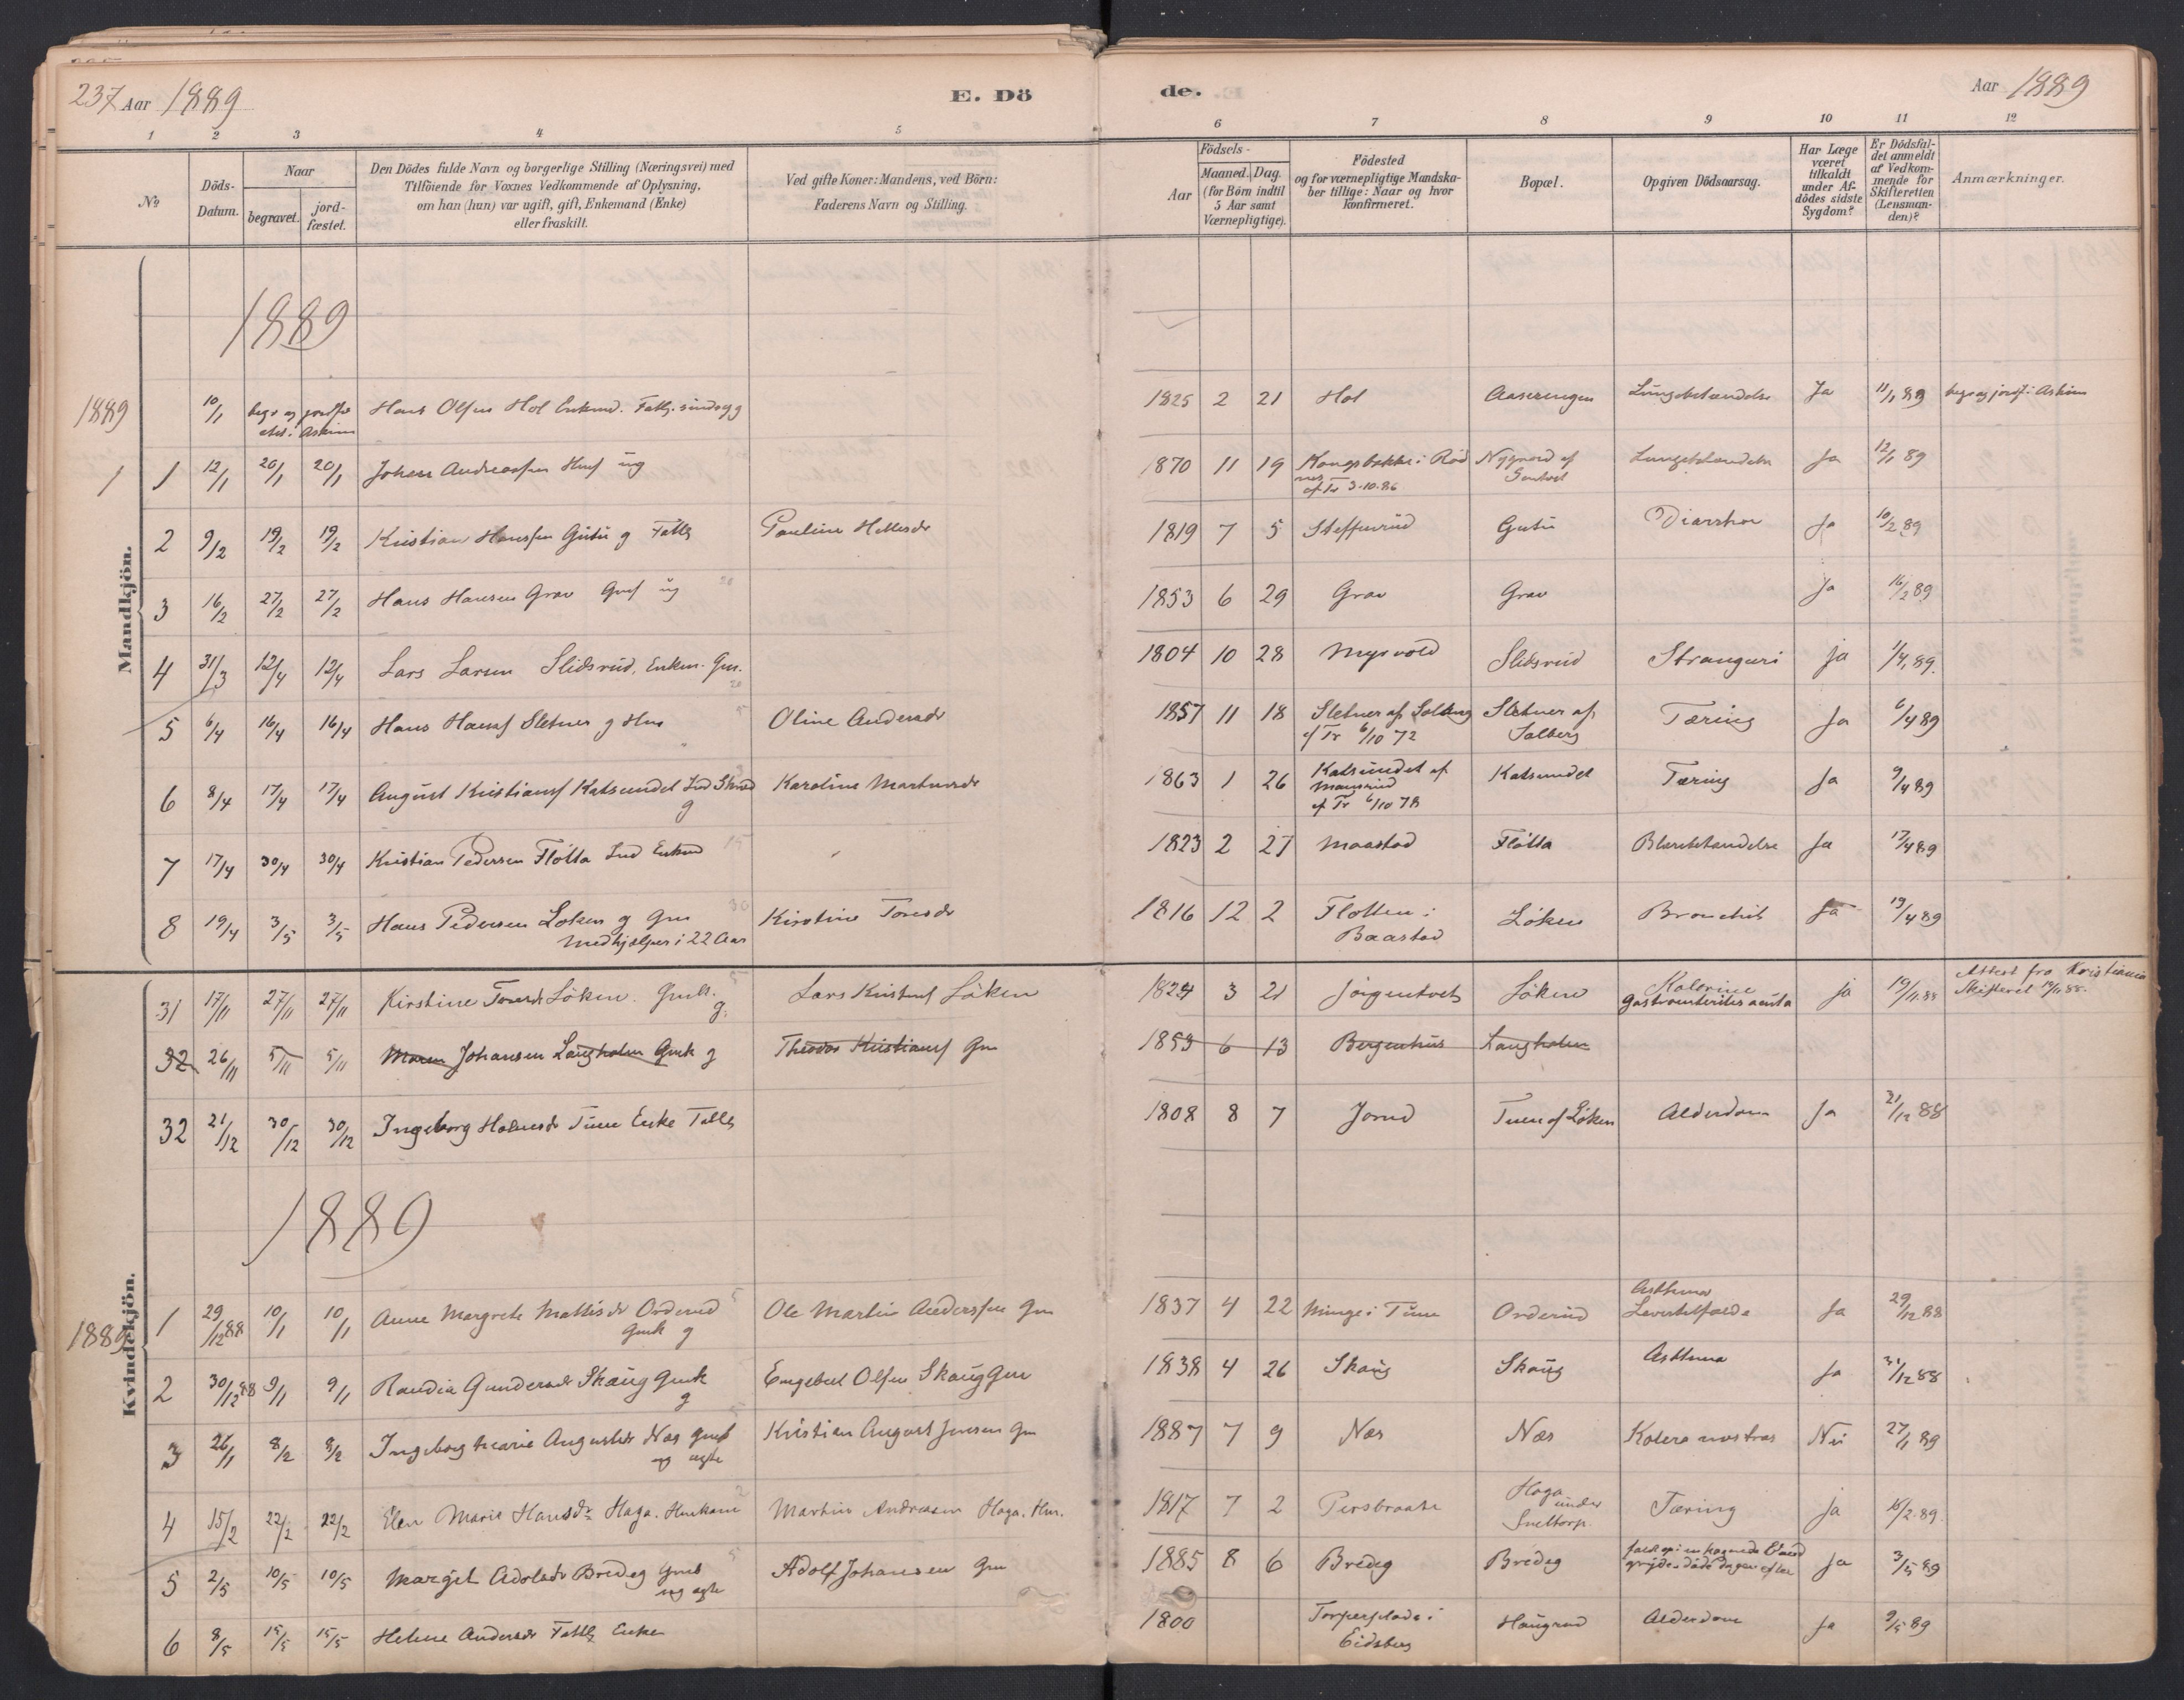 237 Aar 1889 E. Dö de. Aar 1889
1 2 3 4 5 6 7 8 9 10 11 12
No
Döds-Datum.
Naar
begravet.
jord-fæstet.
Den Dödes fulde Navn og borgerlige Stilling (Næringsvei) med
Tilföiende for Voxnes Vedkommende af Oplysning,
om han (hun) var ugift, gift, Enkemand (Enke)
eller fraskilt.
Ved gifte Koner: Mandens, ved Börn:
Faderens Navn og Stilling.
Födsels-
Aar
Maaned. Dag.
(for Börn indtil
5 Aar samt
Værnepligtige).
Födested
og for værnepligtige Mandska-
ber tillige: Naar og hvor
konfirmeret.
Bopæl.
Opgiven Dödsaarsag.
Har Læge
været
tilkaldt
under Af-
dödes sidste
Sygdom?
Er Dödsfal-
det anmeldt
af Vedkom-
mende for
Skifteretten
(Lensman-
den)?
Anmærkninger.
Mandkjön.
1889
1889 10/1 begr og jordfæ Hans Olsen Hol Enkmd. Fattg. sindssyg 1825 2 21 Hol Aaserengen Lungebetændelse Ja 11/1 89 begr og jordf i Askim
i Askim
1 1 12/1 20/1 20/1 Johan Andreassen ug 1870 11 19 Kongsbekke i Röd Nygaard af Lungebetændelse Ja 12/1 89
nes
cf Tr 3-10-86
2 9/2 19/2 19/2 Kristian Hanssen Gutu g Fattg Pauline 1819 7 5 Steffenrud Gutu Diarrhoe Ja 10/2 89
3 16/2 27/2 27/2 Hans Hansen Grav ug 1853 6 29 Grav Grav Ja 16/2 89
4 31/3 12/4 12/4 Lars Larsen Slidsrud, Enkem. Gm. 1804 10 28 Myrvold Slidsrud Stranguri ja 1/4, 89.
5 6/4 16/4 16/4 Hans Hansen Sletner g Hm Oline Andersdr 1857 11 18 Sletner af Solberg Sletner af Tæring Ja 6/4 89
cf Tr 6/10 72 Solberg
6 8/4 17/4 17/4 August Kristians Katsundet Ind Karoline Martinsdr 1863 1 26 Katsundet af Katsundet Tæring Ja 9/4 89
g cf Tr 6/10 78
7 17/4 30/4 30/4 Kristian Pedersen Flötta Ind Enkmd 1823 2 27 Maastad Flötta Ja 17/4 89
8 19/4 3/5 3/5 Hans Pedersen Löken g Gm Kirstine Toresdr 1816 12 2 Flotten i Löken Bronchit Ja 19/4 89
Medhjælper i 22 Aar Baastad
Kvindekjön.
31 17/11 27/11 27/11 Kirstine Toresdr Löken. Gmk. Lars Kristens Löken 1824 3 21 Jörgentvet Löken Kolorine ja 19/11 88 Attest fra Kristiania
g. Gastroenterites acuta Skifteret 19/11 88.
32 26/11 5/11 5/11 Maren Johansen Langholm Gmk g Theodor Kristians Gm 1853 6 13 Bergenhus Langholm
32 21/12 30/12 30/12 Ingeborg Holmsdr Tuen Enke Fattg 1808 8 7 Jorud Tuen af Löken Alderdom Ja 21/12 88
1889
1889 1 29/12 88 10/1 10/1 Anne Margrete Mathisdr Orderud Ole Martin Anderssen Gm 1837 4 22 Minge i Tune Orderud Asthma Ja 29/12 88
Gmk g
2 30/12 88 9/1 9/1 Randia Gundersdr Skaug Gmk Engebret Olsen Skaug Gm 1838 4 26 Skaug Skaug Asthma Ja 31/12 88
g
3 26/1 8/2 8/2 Ingeborg Marie Augustdr Næs Gmb Kristian August Jensen Gm 1887 7 9 Næs Næs Kolera nostras Nei 27/1 89
ug ægte
4 15/2 22/2 22/2 Elen Marie Hansdr Haga. Hmkone Martin Andreasen Haga. Hm. 1817 7 2 Persbraate Haga Tæring ja 15/2. 89.
under
Sneltorp.
5 2/5 10/5 10/5 Margit Adolsdr Bredeg Gmb Adolf Johansen Gm 1885 8 6 Bredeg Bredeg Ja 3/5 89
ug ægte gryde döde dagen efter
6 8/5 15/5 15/5 Helene Andersdr Fattg Enke 1800 Haugrud Alderdom Ja 9/5 89
Eidsberg